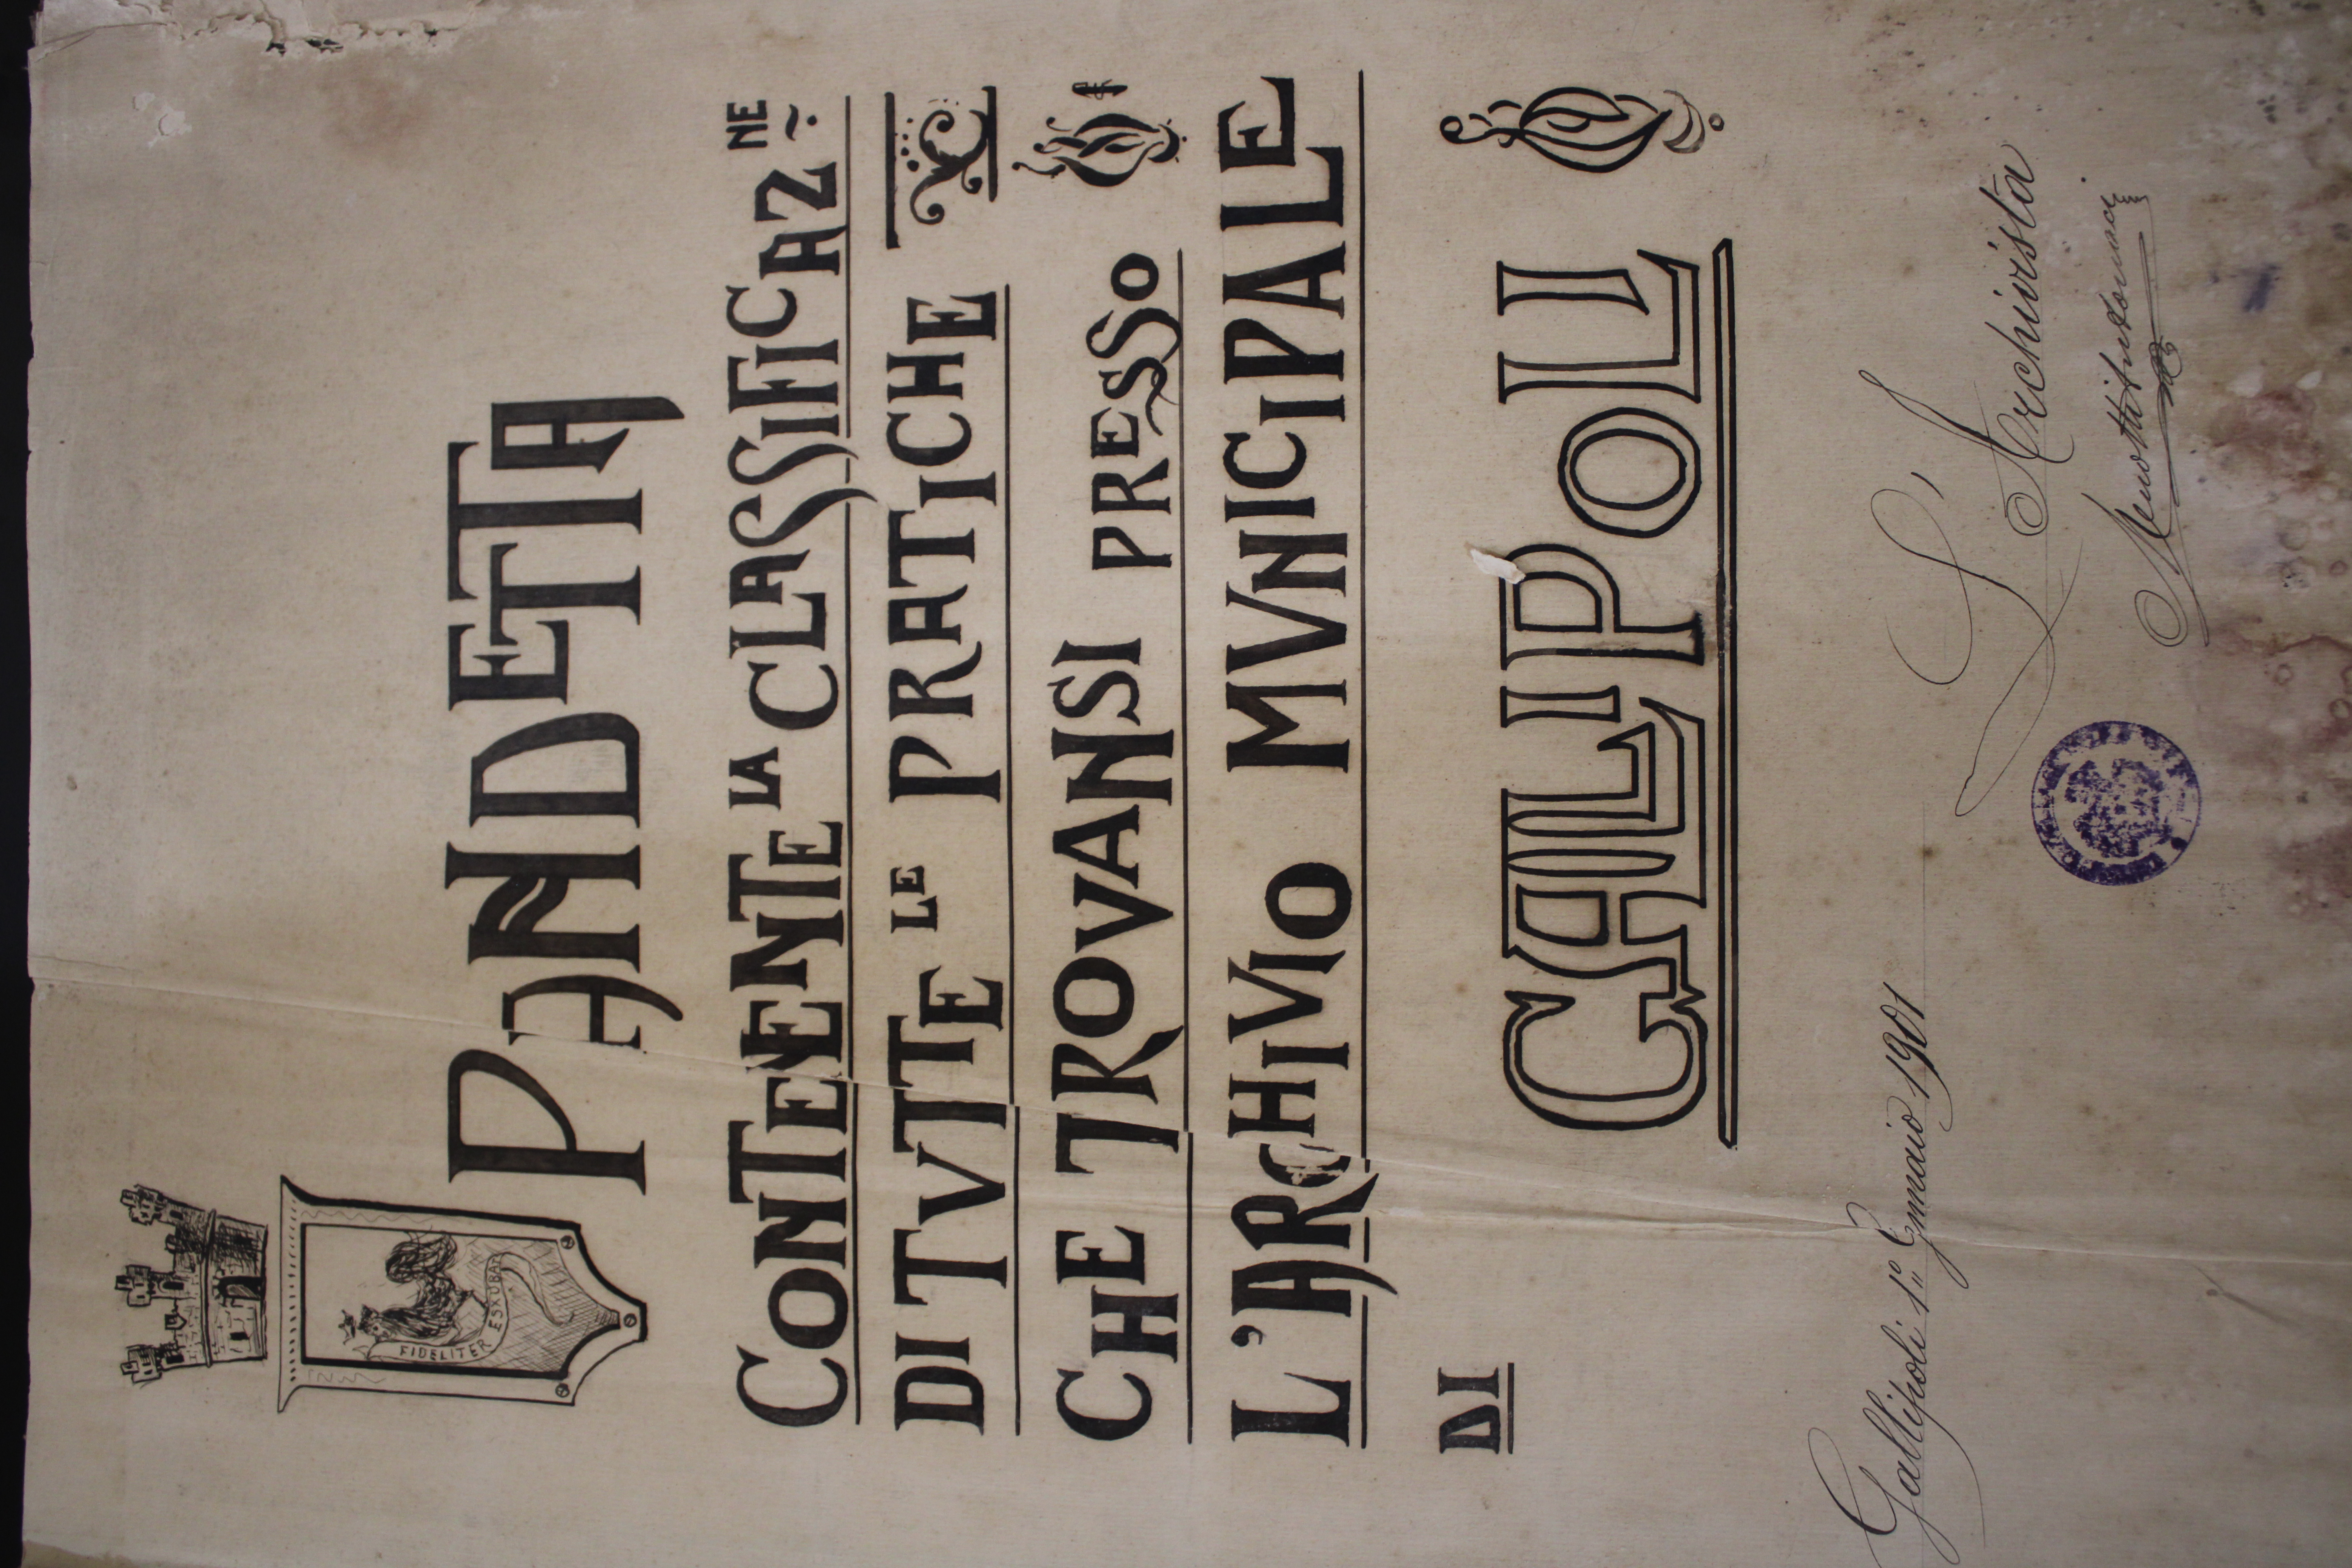 FIDELITER ESXUBAT
PANDETTA
CONTENENTE LA CLASSIFICAZNE
DI TVTTE LE PRATICHE
CHE TROVANSI PRESSO
L'ARCHIVIO MVNICIPALE
DI
GALLIPOLI
Gallipoli 1° Gennaio 1901
L'Archivista
Menotti Antonaci